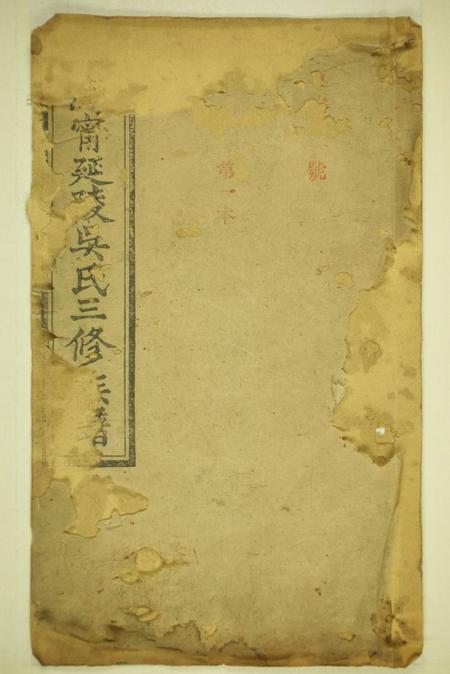 號
第一本
甯延陵吳氏三修族譜